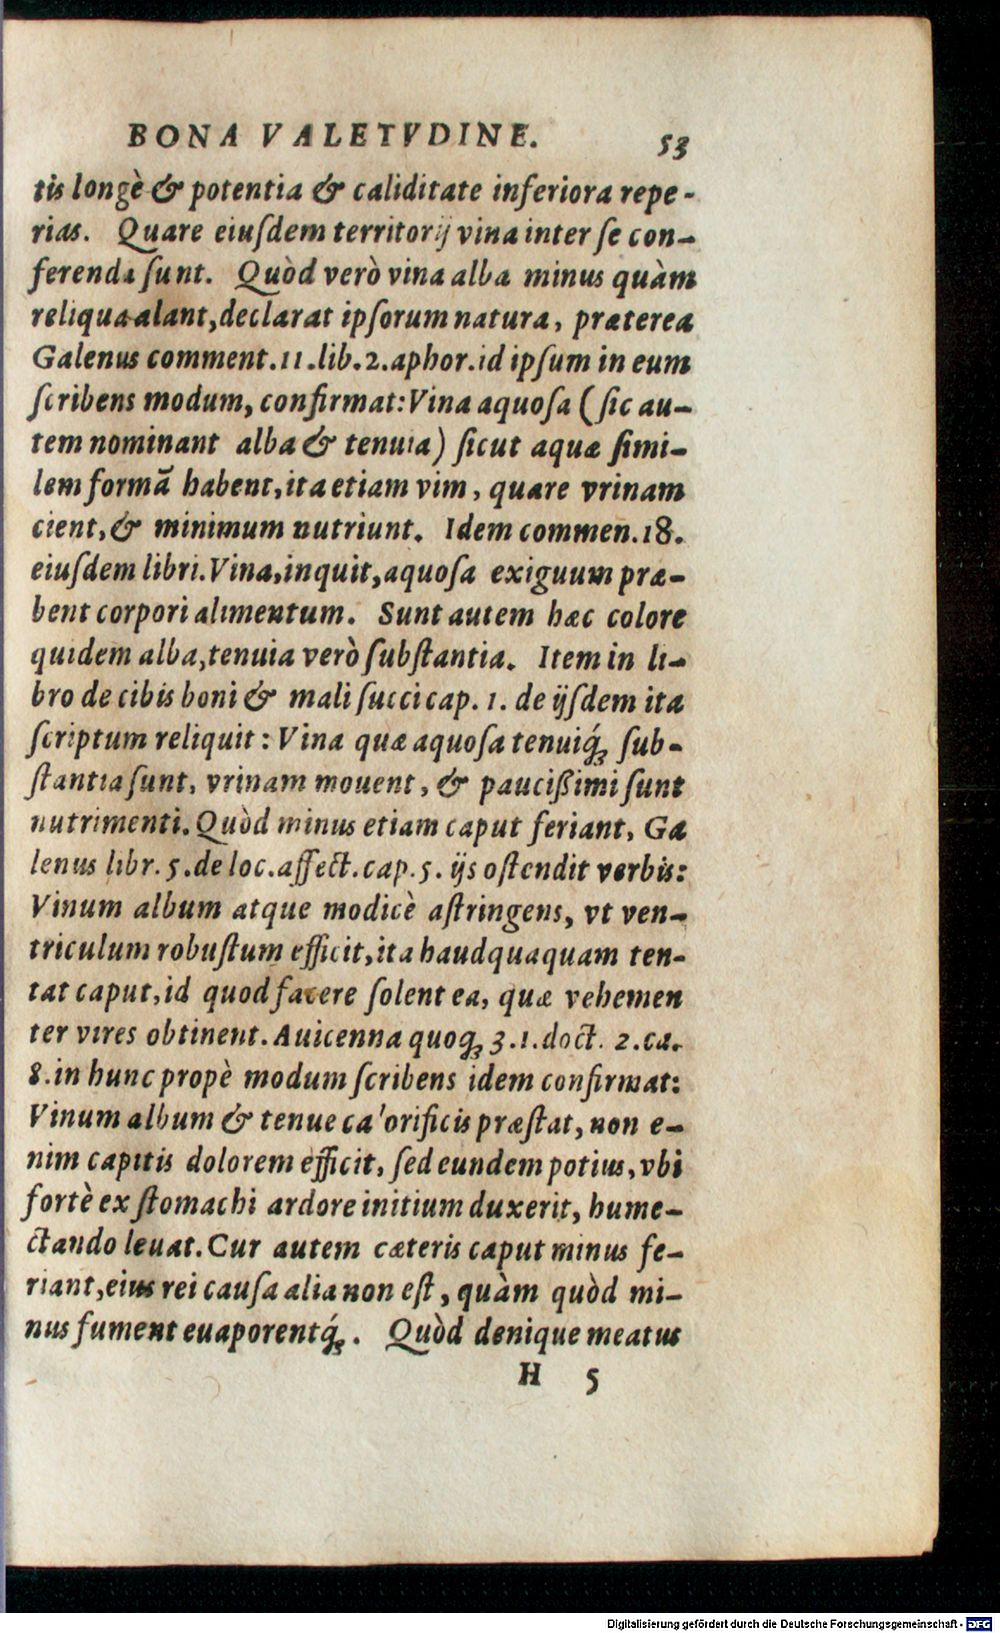 BONA VALETVDINE. 53
tis longè & potentia & caliditate inferiora repe-
rias. Quare eiuſdem territorij vina inter ſe con-
ferenda ſunt. Quòd verò vina alba minus quàm
reliqua alant, declarat ipſorum natura, præterea
Galenus comment. 11. lib. 2. aphor. id ipſum in eum
ſcribens modum, confirmat: Vina aquoſa (ſic au-
tem nominant alba & tenuia) ſicut aquæ ſimi-
lem formā habent, ita etiam vim, quare vrinam
cient, & minimum nutriunt. Idem commen. 18.
eiuſdem libri. Vina, inquit, aquoſa exiguum præ-
bent corpori alimentum. Sunt autem hæc colore
quidem alba, tenuia verò ſubſtantia. Item in li-
bro de cibis boni & mali ſucci cap. 1. de ijſdem ita
ſcriptum reliquit: Vina quæ aquoſa tenuiq́; ſub-
ſtantia ſunt, vrinam mouent, & paucißimi ſunt
nutrimenti. Quòd minus etiam caput feriant, Ga
lenus libr. 5. de loc. affect. cap. 5. ijs oſtendit verbis:
Vinum album atque modicè aſtringens, vt ven-
triculum robuſtum efficit, ita haudquaquam ten-
tat caput, id quod facere ſolent ea, quæ vehemen
ter vires obtinent. Auicenna quoq; 3. 1. doct. 2. ca.
8. in hunc propè modum ſcribens idem confirmat:
Vinum album & tenue calorificis præſtat, non e-
nim capitis dolorem efficit, ſed eundem potius, vbi
fortè ex ſtomachi ardore initium duxerit, hume-
ctando leuat. Cur autem cæteris caput minus fe-
riant, eius rei cauſa alia non eſt, quàm quòd mi-
nus fument euaporentq́;. Quòd denique meatus
H 5
Digitalisierung gefördert durch die Deutsche Forschungsgemeinschaft - DFG